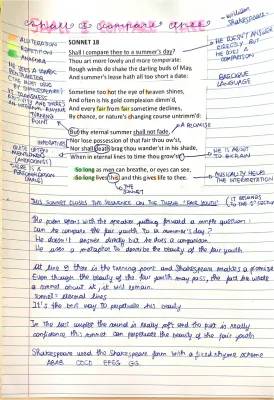 Shall I Compare thee
William Shakespeare
ALLITERATION
REPETITIONS
ANAPHORA
HE DOESN'T ANSWER DIRECTLY BUT HE DOES A COMPARISON
BAROQUE LANGUAGE
SONNET 18
Shall I compare thee to a summer's day?
Thou art more lovely and more temperate:
Rough winds do shake the darling buds of May,
And summer's lease hath all too short a date:
Sometime too hot the eye of heaven shines,
And often is his gold complexion dimm'd,
And every fair from fair sometime declines,
By chance, or nature's changing course untrimm'd:
TURNING POINT
A PROMISE
But thy eternal summer shall not fade,
Nor lose possession of that fair thou ow'st,
Nor shall death brag thou wander'st in his shade,
When in eternal lines to time thou grow'st:
So long as men can breathe, or eyes can see,
So long lives this, and this gives life to thee.
THE SONNET
QUITE OFTEN
HE IS ABOUT TO EXPLAIN
MUSICALITY HELPS THE INTERPRETATION
THIS SONNET CLOSES THE SEQUENCE ON THE THEME "FAIR YOUTH"
The poem opens with the speaker putting forward a simple question:
Can he compare the fair youth to a summer's day?
He doesn't answer directly but he does a comparison
He uses a metaphor to describe the beauty of the fair youth
At line 9 there is the turning point and Shakespeare makes a promise
Even though the beauty of the fair youth may pass, the poet
sonnet about it, it will remain.
Sonnet: eternal lines
It's the best way to perpetuate his beauty
In the last couplet the sound is really soft and the poet is really
confident this sonnet can perpetuate the beauty of the fair youth
Shakespeare used the Shakespeare form with a fixed rhyme scheme
ABAB CDCD EFEG GG